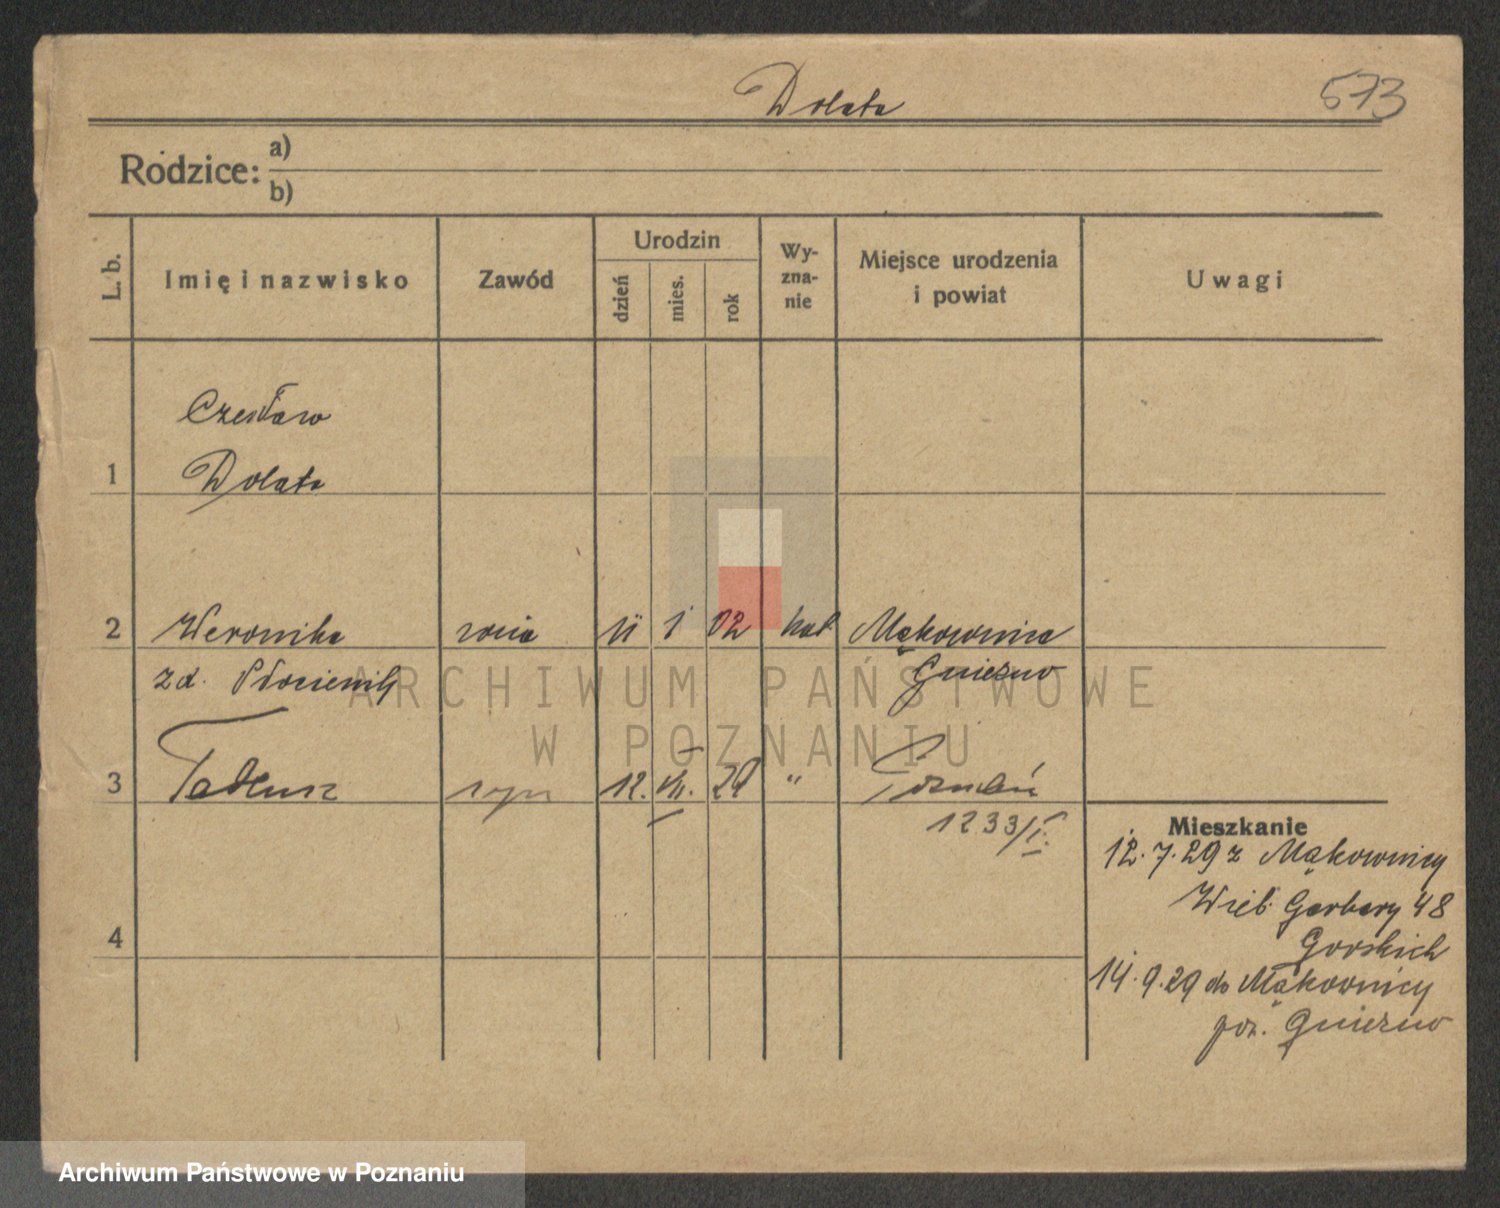 Dolata
573
Rodzice: a)
b)
L. b.
Imię i nazwisko
Zawód
Urodzin
dzień
mies.
rok
Wy-
zna-
nie
Miejsce urodzenia
i powiat
Uwagi
Czesław
1 Dolata
2 Weronika żona 11 1 02 kat Mąkownica
zd. Płocienik Gniezno
3 Tadeusz syn 12. VII. 29 " Poznań
1233/I.
4
Mieszkanie
12.7.29 z Mąkownicy
Garbary 48
Gorskich
14.9.29 do Mąkownicy
Gniezno
ARCHIWUM PAŃSTWOWE
W POZNANIU
Archiwum Państwowe w Poznaniu